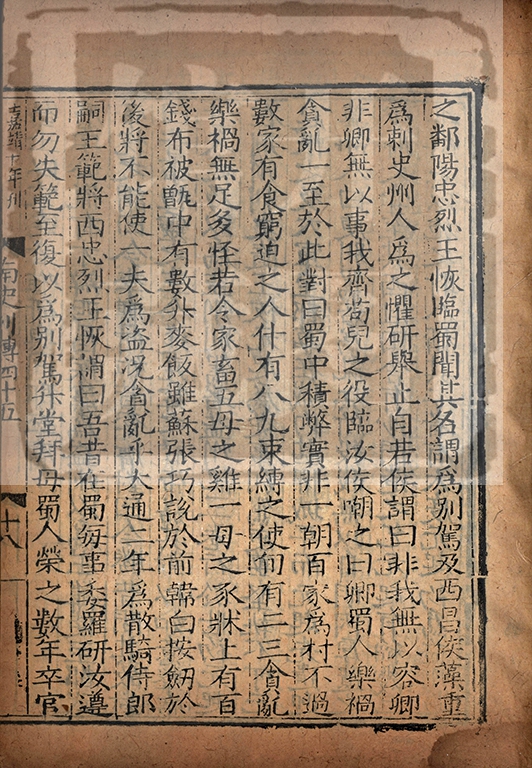 之鄱陽忠烈王恢臨蜀聞其名謂爲别駕及西昌侯藻重
爲刺史州人爲之懼研舉止自若侯謂曰非我無以容卿
非卿無以事我齊苟兒之役臨汝侯嘲之曰卿蜀人樂禍
貪亂一至於此對曰蜀中積弊實非一朝百家爲村不過
數家有食窮迫之人什有八九束縛之使旬有二三貪亂
樂禍無足多怪若令家畜五母之雞一母之豕牀上有百
錢布被甑中有數升麥飯雖蘇張巧說於前韓白按劒於
後將不能使一夫爲盗况貪亂乎大通二年爲散騎侍郎
嗣王範將西忠烈王恢謂曰吾昔在蜀每事委羅研汝遵
而勿失範至復以爲别駕升堂拜母蜀人榮之數年卒官
嘉靖十年刋
南史列傳四十五
十八